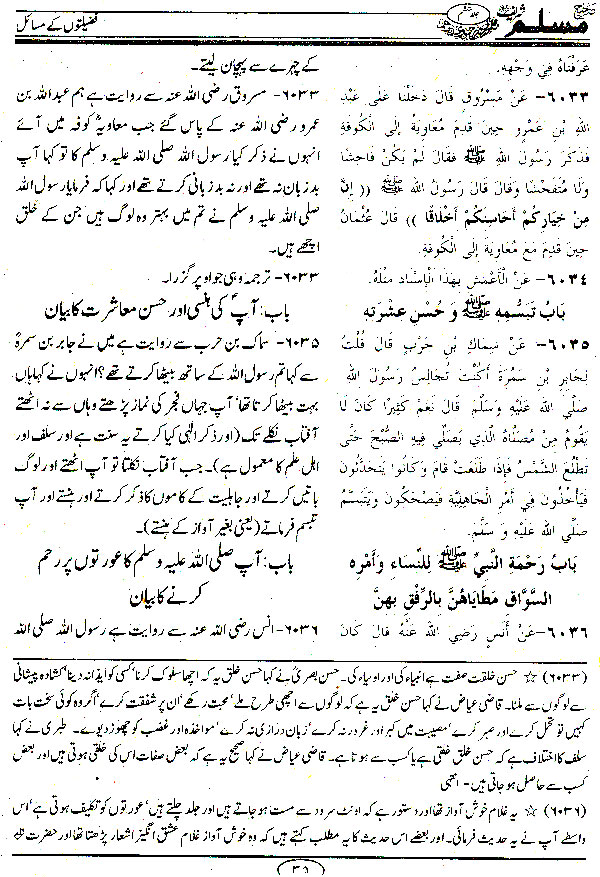 صحیح مسلم شریف
جلد ششم
فضیلتوں کے مسائل
عَرَفْنَاهُ فِي وَجْهِهِ.
٦٠٣٣- عَنْ مَسْرُوقٍ قَالَ دَخَلْنَا عَلَى عَبْدِ
اللهِ بْنِ عَمْرٍو حِينَ قَدِمَ مُعَاوِيَةُ إِلَى الْكُوفَةِ
فَذَكَرَ رَسُولَ اللهِ ﷺ فَقَالَ لَمْ يَكُنْ فَاحِشًا
وَلَا مُتَفَحِّشًا وَقَالَ قَالَ رَسُولُ اللهِ ﷺ (( إِنَّ
مِنْ خِيَارِكُمْ أَحَاسِنَكُمْ أَخْلَاقًا )) قَالَ عُثْمَانُ
حِينَ قَدِمَ مَعَ مُعَاوِيَةَ إِلَى الْكُوفَةِ.
٦٠٣٤- عَنْ الْأَعْمَشِ بِهَذَا الْإِسْنَادِ مِثْلَهُ.
بَابُ تَبَسُّمِهِ ﷺ وَ حُسْنِ عِشْرَتِهِ
٦٠٣٥- عَنْ سِمَاكِ بْنِ حَرْبٍ قَالَ قُلْتُ
لِجَابِرِ بْنِ سَمُرَةَ أَكُنْتَ تُجَالِسُ رَسُولَ اللهِ
صَلَّى اللهُ عَلَيْهِ وَسَلَّمَ قَالَ نَعَمْ كَثِيرًا كَانَ لَا
يَقُومُ مِنْ مُصَلَّاهُ الَّذِي يُصَلِّي فِيهِ الصُّبْحَ حَتَّى
تَطْلُعَ الشَّمْسُ فَإِذَا طَلَعَتْ قَامَ وَكَانُوا يَتَحَدَّثُونَ
فَيَأْخُذُونَ فِي أَمْرِ الْجَاهِلِيَّةِ فَيَضْحَكُونَ وَيَتَبَسَّمُ
صَلَّى اللهُ عَلَيْهِ وَ سَلَّمَ.
بَابُ رَحْمَةِ النَّبِيِّ ﷺ لِلنِّسَاءِ وَأَمْرِهِ
السَّوَّاقَ مَطَايَاهُنَّ بِالرِّفْقِ بِهِنَّ
٦٠٣٦- عَنْ أَنَسٍ رَضِيَ اللهُ عَنْهُ قَالَ كَانَ
کے چہرے سے پہچان لیتے۔
۶۰۳۳- مسروق رضی اللہ عنہ سے روایت ہے ہم عبداللہ بن
عمرو رضی اللہ عنہ کے پاس گئے جب معاویہؓ کوفہ میں آئے
انہوں نے ذکر کیا رسول اللہ صلی اللہ علیہ وسلم کا تو کہا آپ
بدزبان نہ تھے اور نہ بدزبانی کرتے تھے اور کہا کہ فرمایا رسول اللہ
صلی اللہ علیہ وسلم نے تم میں بہتر وہ لوگ ہیں جن کے خلق
اچھے ہیں۔
۶۰۳۳- ترجمہ وہی جو اوپر گزرا۔
باب: آپؐ کی ہنسی اور حسن معاشرت کا بیان
۶۰۳۵- سماک بن حرب سے روایت ہے میں نے جابر بن سمرہؓ
سے کہا تم رسول اللہ کے ساتھ بیٹھا کرتے تھے؟ انہوں نے کہا ہاں
بہت بیٹھا کرتا تھا' آپ جہاں فجر کی نماز پڑھتے وہاں سے نہ اٹھتے
آفتاب نکلے تک (اور ذکر الٰہی کیا کرتے یہ سنت ہے اور سلف اور
اہل علم کا معمول ہے)۔ جب آفتاب نکلتا تو آپ اٹھتے اور لوگ
باتیں کرتے اور جاہلیت کے کاموں کا ذکر کرتے اور ہنستے اور آپ
تبسم فرماتے (یعنی بغیر آواز کے ہنستے)۔
باب: آپ صلی اللہ علیہ وسلم کا عورتوں پر رحم
کرنے کا بیان
۶۰۳۶- انس رضی اللہ عنہ سے روایت ہے رسول اللہ صلی اللہ
(۶۰۳۳) ☆ حسن خلقت صفت ہے انبیاء کی اور اولیاء کی۔ حسن بصریؒ نے کہا حسن خلق یہ کہ اچھا سلوک کرنا' کسی کو ایذا نہ دینا' کشادہ پیشانی
سے لوگوں سے ملنا۔ قاضی عیاض نے کہا حسن خلق یہ ہے کہ لوگوں سے اچھی طرح ملے' محبت رکھے' ان پر شفقت کرے' اگر وہ کوئی سخت بات
کہیں تو تحمل کرے اور صبر کرے' مصیبت میں کبر اور غرور نہ کرے' زبان درازی نہ کرے' مواخذہ اور غضب کو چھوڑ دیوے۔ طبری نے کہا
سلف کا اختلاف ہے کہ حسن خلق خلقی ہے یا کسب سے ہوتا ہے۔ قاضی عیاض نے کہا صحیح یہ ہے کہ بعض صفات اس کی خلقی ہوتی ہیں اور بعض
کسب سے حاصل ہو جاتی ہیں۔ انتہی
(۶۰۳۶) ☆ یہ غلام خوش آواز تھا اور دستور ہے کہ اونٹ سرود سے مست ہو جاتے ہیں اور جلد چلتے ہیں' عورتوں کو تکلیف ہوتی ہے' اس
واسطے آپ نے یہ حدیث فرمائی۔ اور بعضے اس حدیث کا یہ مطلب کہتے ہیں کہ وہ خوش آواز غلام عشق انگیز اشعار پڑھتا تھا اور حضرت